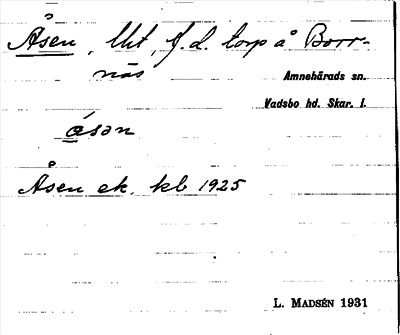 Åsen, Utt, f. d. torp å Borr-
näs
Amnehärads sn.
Vadsbo hd. Skar. l.
åsan
Åsen ek. kb 1925
L. MADSÉN 1931